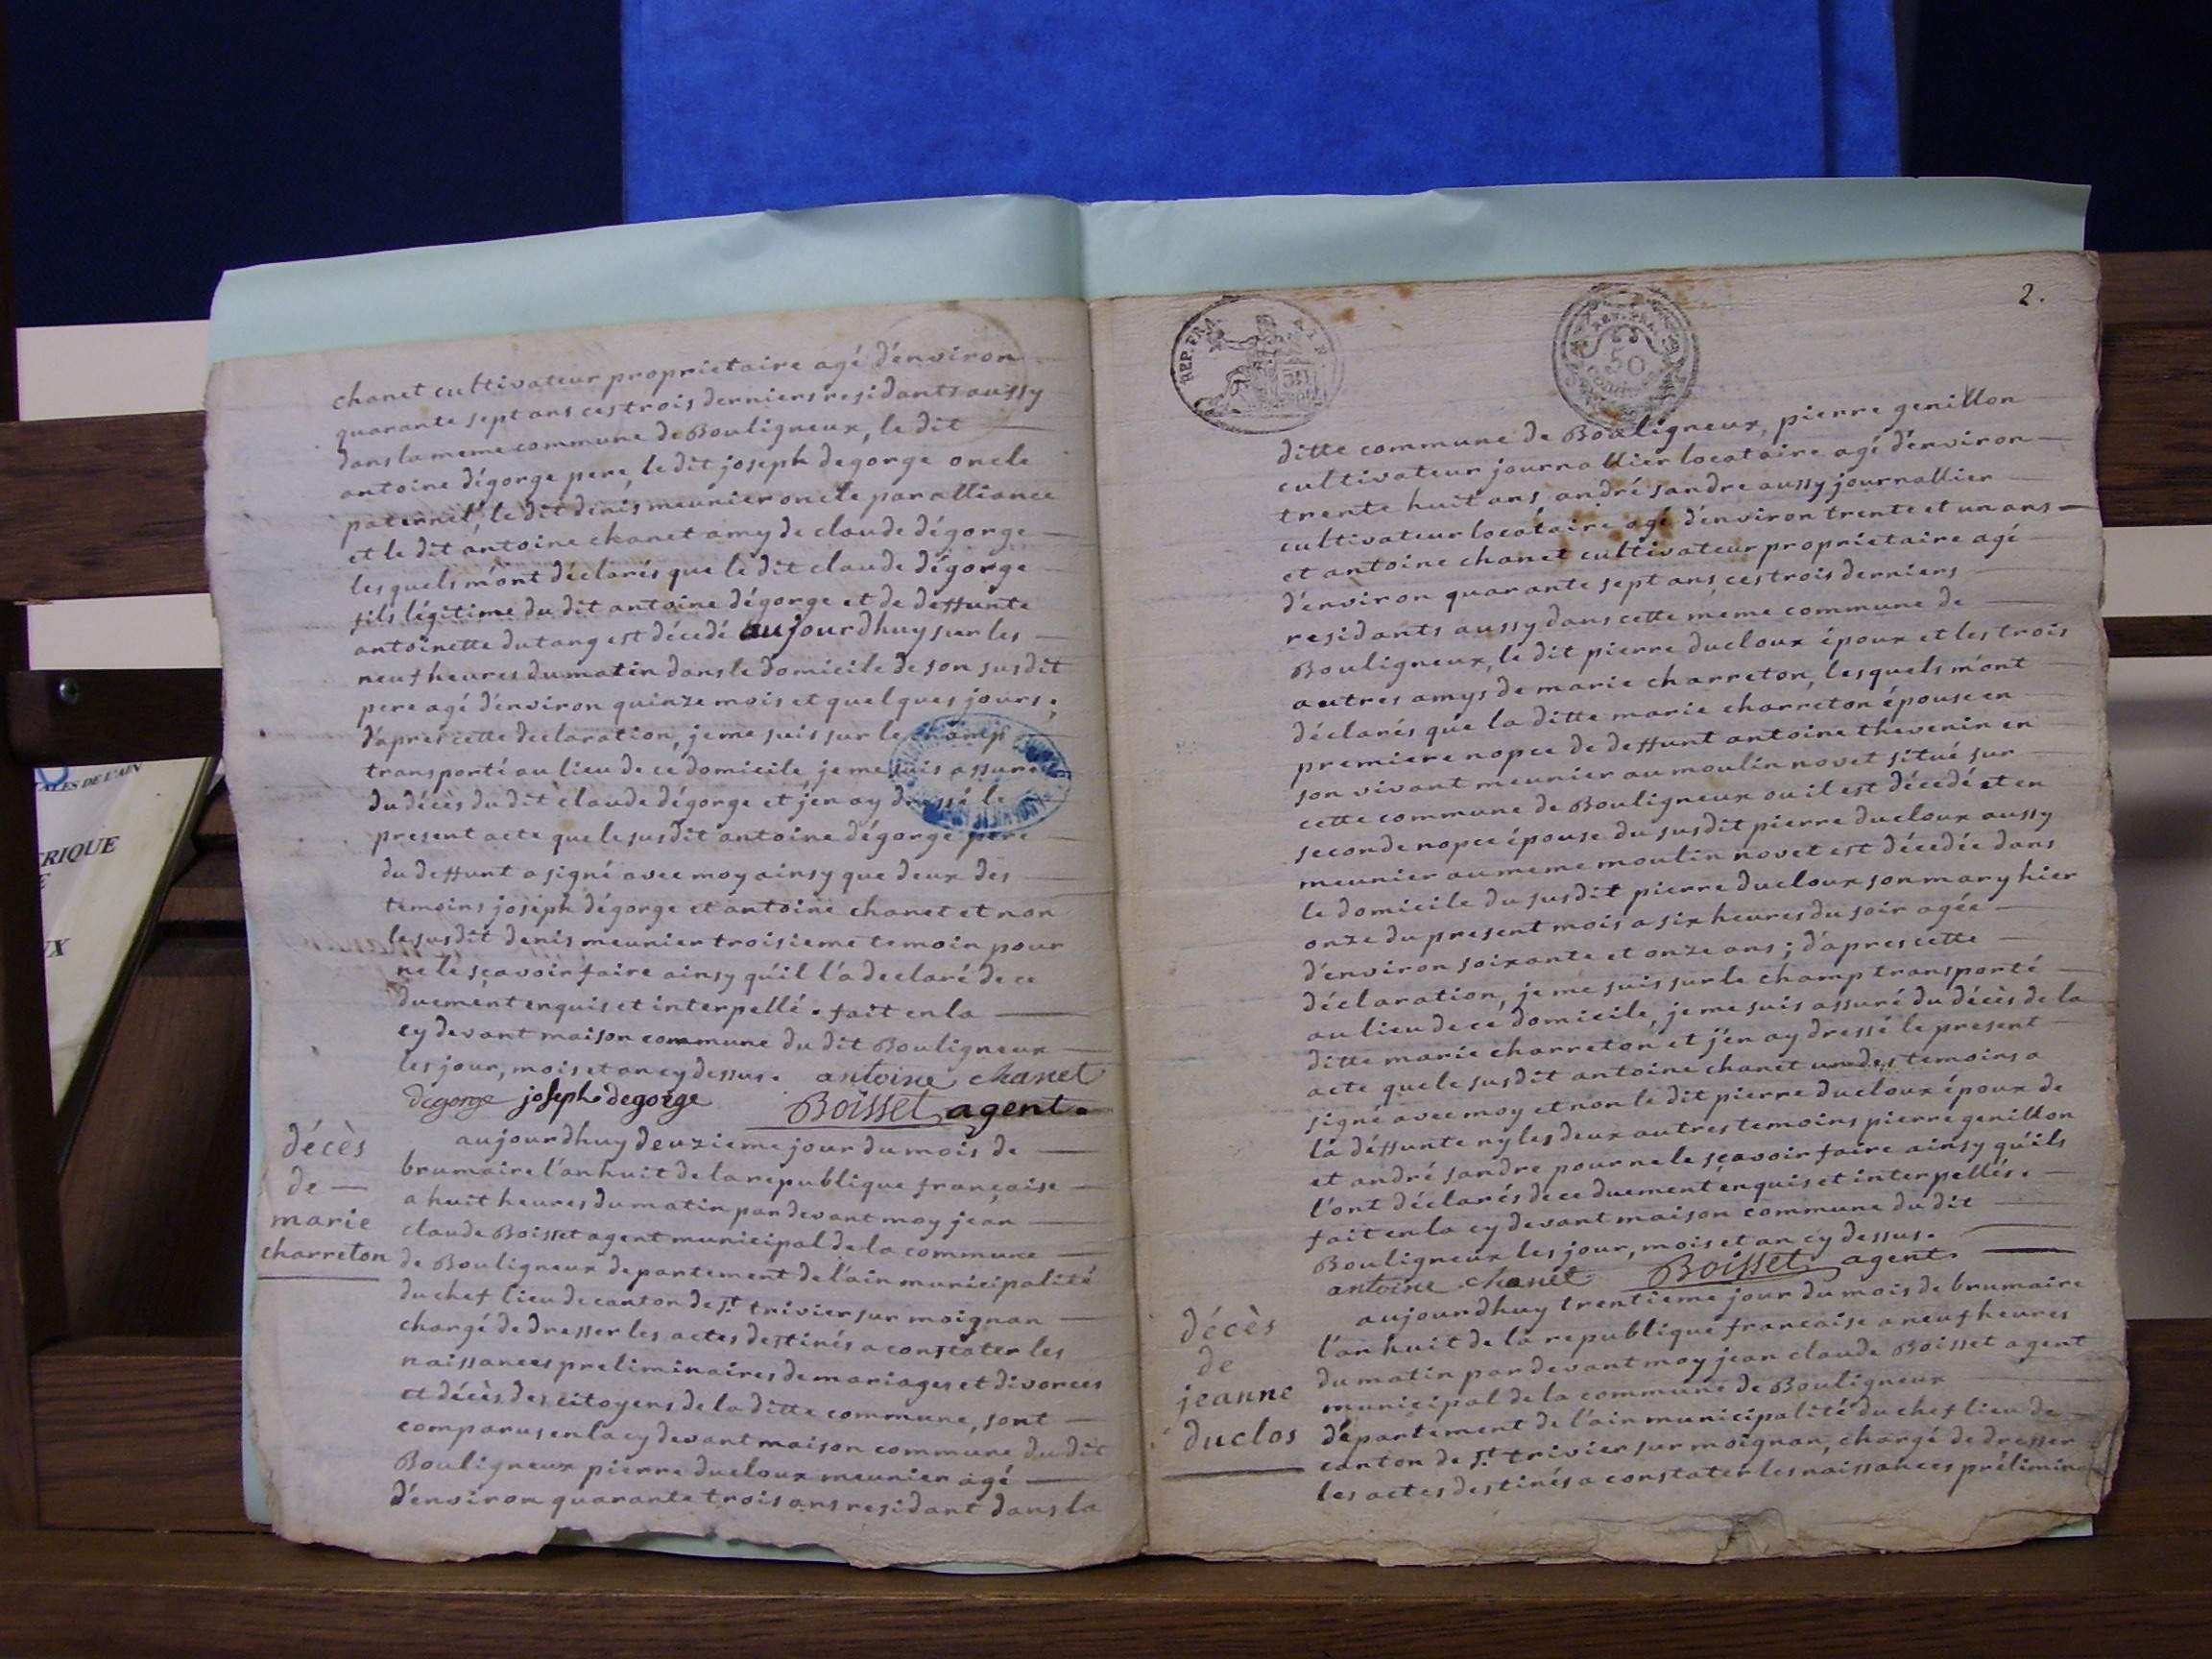 chanet cultivateur proprietaire agé d'environ
quarante sept ans ces trois derniers residants aussy
dans la meme commune de Bouligneux, le dit
antoine dégorge pere, le dit joseph degorge oncle
paternel, le dit denis meunier oncle par alliance
et le dit antoine chanet amy de claude dégorge
lesquels m'ont déclarés que le dit claude dégorge
fils légitime du dit antoine dégorge et de deffunte
antoinette dutang est décedé aujourdhuy sur les
neuf heures du matin dans le domicile de son susdit
pere agé d'environ quinze mois et quelques jours;
d'apres cette declaration, je me suis sur le champ
transporté au lieu de ce domicile, je me suis assuré
du décès du dit claude dégorge et j'en ay dressé le
present acte que le susdit antoine dégorge pere
du deffunt a signé avec moy ainsy que deux des
temoins joseph dégorge et antoine chanet et non
le susdit denis meunier troisieme temoin pour
ne le sçavoir faire ainsy qu'il l'a declaré de ce
duement enquis et interpellé. fait en la
cy devant maison commune du dit Bouligneux
les jour, mois et an cy dessus. antoine chanet
degorge joseph degorge Boisset agent.
décès
de
marie
charreton
aujourdhuy deuzieme jour du mois de
brumaire l'an huit de la republique française
a huit heures du matin par devant moy jean
claude Boisset agent municipal de la commune
de Bouligneux departement de l'ain municipalité
du chef lieu de canton de st trivier sur moignan
chargé de dresser les actes destinés a constater les
naissances preliminaires de mariages et divorces
et décès des citoyens de la ditte commune, sont
comparus en la cy devant maison commune du dit
Bouligneux pierre ducloux meunier agé
d'environ quarante trois ans residant dans la
REP. FRA
50
2.
ditte commune de Bouligneux, pierre genillon
cultivateur journallier locataire agé d'environ
trente huit ans, andré sandre aussy journallier
cultivateur locataire agé d'environ trente et un ans
et antoine chanet cultivateur proprietaire agé
d'environ quarante sept ans, ces trois derniers
residants aussy dans cette même commune de
Bouligneux, le dit pierre ducloux époux et les trois
autres amys de marie charreton, lesquels m'ont
déclarés que la ditte marie charreton épouse en
premiere nopce de deffunt antoine thevenin en
son vivant meunier au moulin novet situé sur
cette commune de Bouligneux ou il est décedé et en
seconde nopce épouse du susdit pierre ducloux aussy
meunier au meme moulin novet est décedée dans
le domicile du susdit pierre ducloux son mary hier
onze du present mois a six heures du soir agée
d'environ soixante et onze ans; d'apres cette
déclaration, je me suis sur le champ transporté
au lieu de ce domicile, je me suis assuré du décès de la
ditte marie charreton et j'en ay dressé le present
acte que le susdit antoine chanet un des temoins a
signé avec moy et non le dit pierre ducloux époux de
la déffunte ny les deux autres temoins pierre genillon
et andré sandre pour ne le sçavoir faire ainsy qu'ils
l'ont déclarés de ce duement enquis et interpellés.
fait en la cy devant maison commune du dit
Bouligneux les jour, mois et an cy dessus.
antoine chanet Boisset agent.
décès
de
jeanne
duclos
aujourdhuy trentieme jour du mois de brumaire
l'an huit de la republique française a neuf heures
du matin par devant moy jean claude Boisset agent
municipal de la commune de Bouligneux
département de l'ain municipalité du chef lieu de
canton de st trivier sur moignan, chargé de dresser
les actes destinés a constater les naissances prélimina
ALES DE L'AIN
RIQUE